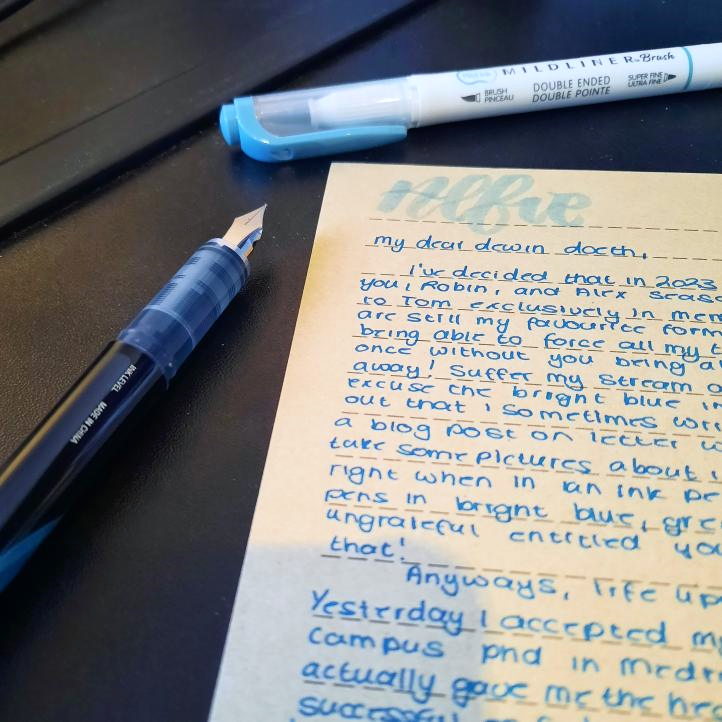 MILDLINER Brush
BRUSH
PINCEAU
DOUBLE ENDED
DOUBLE POINTE
SUPER FINE
ULTRA FINE
INK LEVEL MADE IN CHINA
alfie
my dear dewin doeth,
I've decided that in 2023
you, Robin, and Alex
to Tom exclusively in
are still my favourite
being able to force all my
once without you being
away! Suffer my stream
excuse the bright blue
out that I sometimes
a blog post on letter
take some pictures about
right when in an ink
pens in bright blue,
ungrateful entitled
that!
Anyways, life
Yesterday I accepted
campus and in
actually gave me the
successful